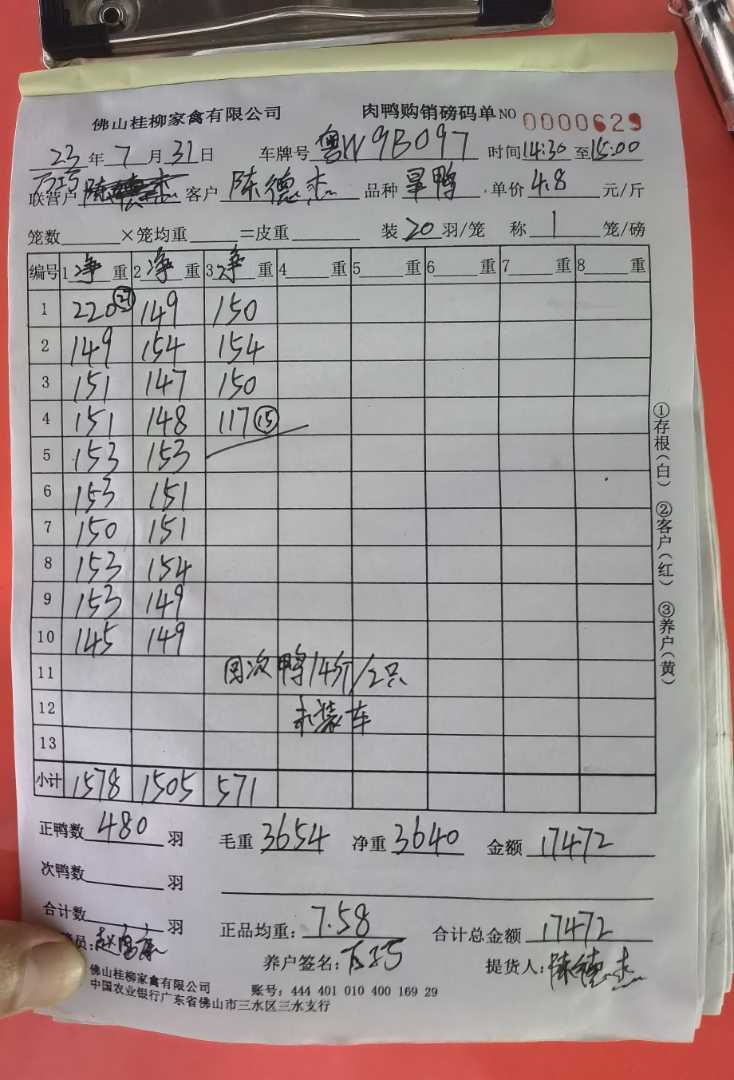 佛山桂柳家禽有限公司 肉鸭购销磅码单 NO 0000629
23年7月31日 车牌号 粤W9B097 时间14:30至15:00
联营户 客户 陈德杰 品种 旱鸭 单价 4.8 元/斤
笼数 ×笼均重 =皮重 装 20 羽/笼 称 1 笼/磅
编号 1 净重 2 净重 3 净重 4 重 5 重 6 重 7 重 8 重
1 220 (29) 149 150
2 149 154 154
3 151 147 150
4 151 148 117 (15)
5 153 153
6 153 151
7 150 151
8 153 154
9 153 149
10 145 149
11 次鸭14斤/2只
12 未装车
13
小计 1578 1505 571
正鸭数 480 羽 毛重 3654 净重 3640 金额 17472
次鸭数 羽
合计数 羽 正品均重: 7.58 合计总金额 17472
员: 养户签名: 提货人: 陈德杰
佛山桂柳家禽有限公司 账号: 444 401 010 400 169 29
中国农业银行广东省佛山市三水区三水支行
①存根(白) ②客户(红) ③养户(黄)